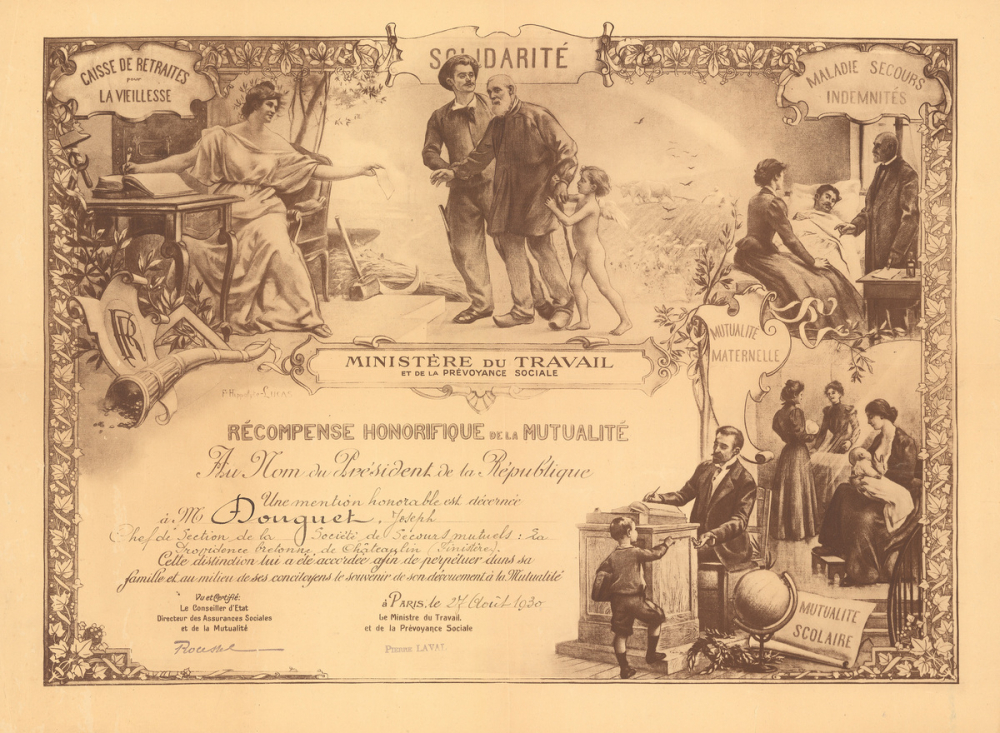 SOLIDARITÉ
CAISSE DE RETRAITES
pour
LA VIEILLESSE
MALADIE SECOURS
INDEMNITÉS
RF
MUTUALITÉ
MATERNELLE
MINISTÈRE DU TRAVAIL
ET DE LA PRÉVOYANCE SOCIALE
RÉCOMPENSE HONORIFIQUE DE LA MUTUALITÉ
Au Nom du Président de la République
Une mention honorable est décernée
à M Douguet, Joseph
Chef de Section de la Société de Secours mutuels : La
Providence bretonne de Châteaulin (Finistère).
Cette distinction lui a été accordée afin de perpétuer dans sa
famille et au milieu de ses concitoyens le souvenir de son dévouement à la Mutualité
Vu et Certifié:
Le Conseiller d'Etat
Directeur des Assurances Sociales
et de la Mutualité
à PARIS, le 27 Août 1930
Le Ministre du Travail,
et de la Prévoyance Sociale
PIERRE LAVAL
MUTUALITÉ
SCOLAIRE